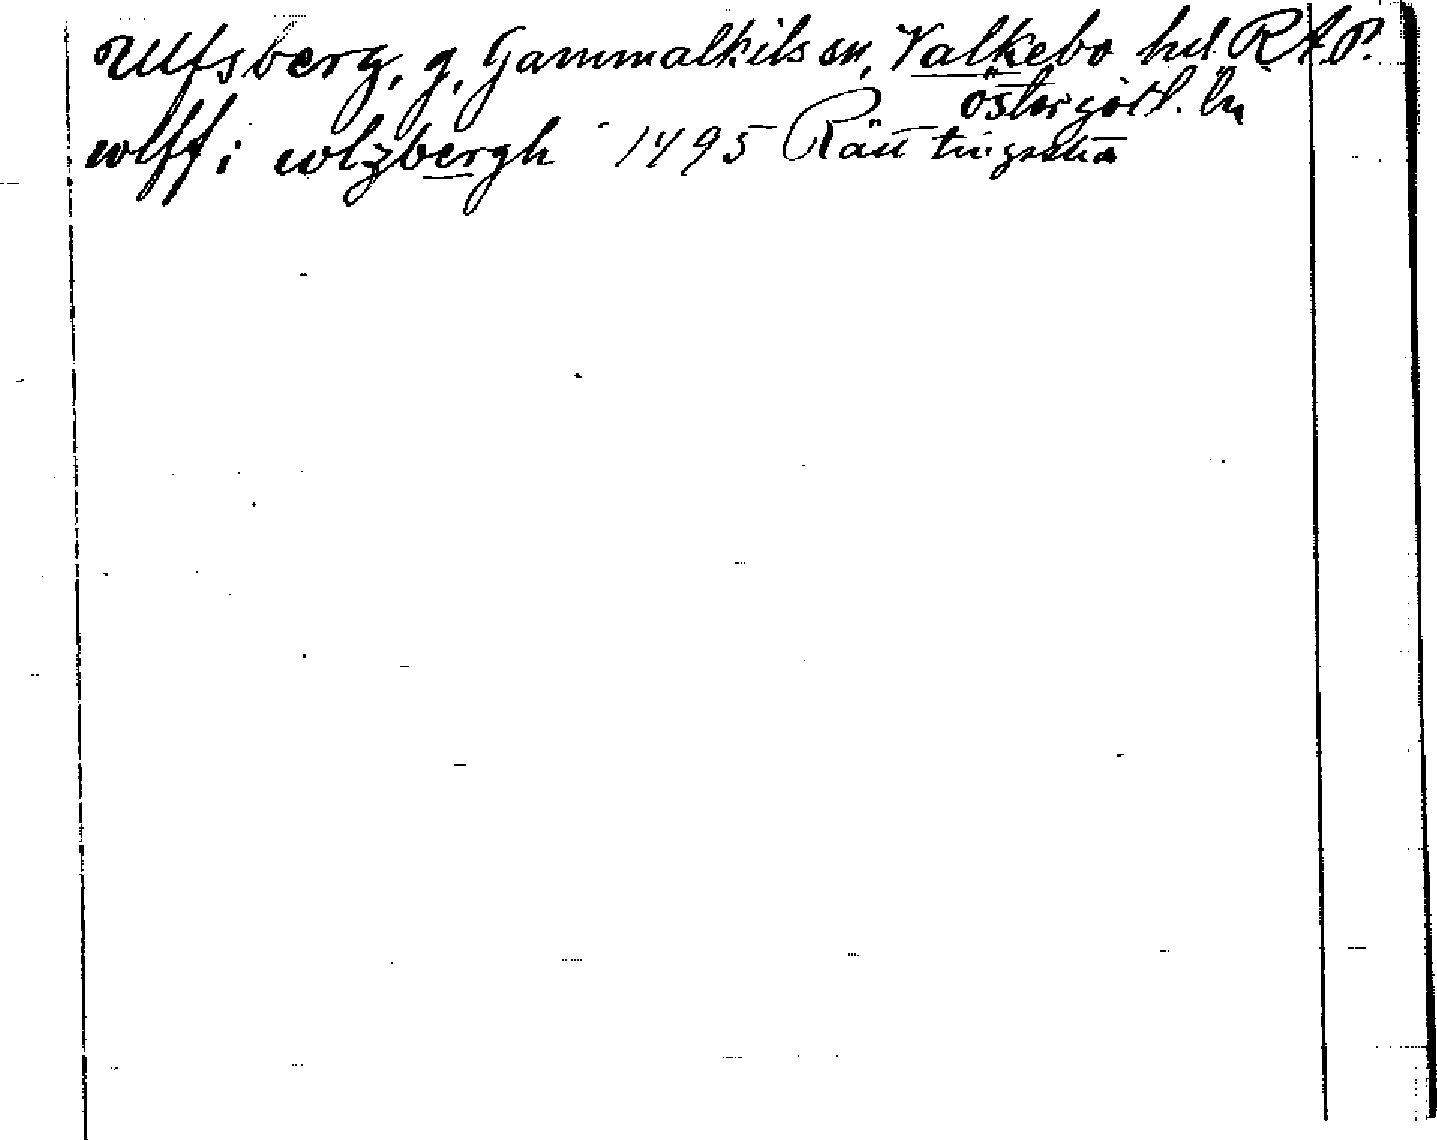 Ulfsberg, g, Gammalkils sn, Valkebo hd. RAP.
Östergötl. ln
wlff i wlzbergh 1495 Rättingstha